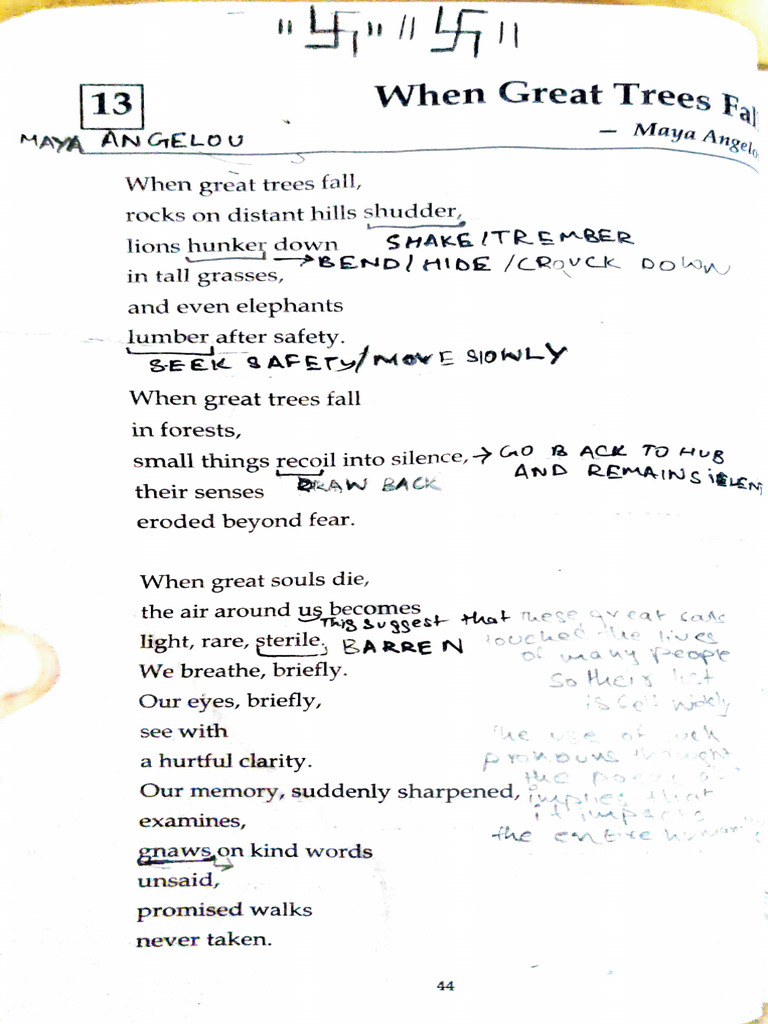 " 卐 " " 卐 "
13
When Great Trees Fal
— Maya Angelo
MAYA ANGELOU
When great trees fall,
rocks on distant hills shudder,
lions hunker down SHAKE/TREMBER
→BEND/HIDE/CROUCK DOWN
in tall grasses,
and even elephants
lumber after safety.
SEEK SAFETY/MOVE SLOWLY
When great trees fall
in forests,
small things recoil into silence, → GO BACK TO HUB
AND REMAIN SIELENT
their senses DRAW BACK
eroded beyond fear.
When great souls die,
the air around us becomes
This suggest that these great
light, rare, sterile. BARREN touched the lives
of many people
We breathe, briefly.
so their
is felt widely
Our eyes, briefly,
see with
the use of such
a hurtful clarity.
pronouns
the
Our memory, suddenly sharpened, implies that
it impacts
examines,
the entire
gnaws on kind words
unsaid,
promised walks
never taken.
44